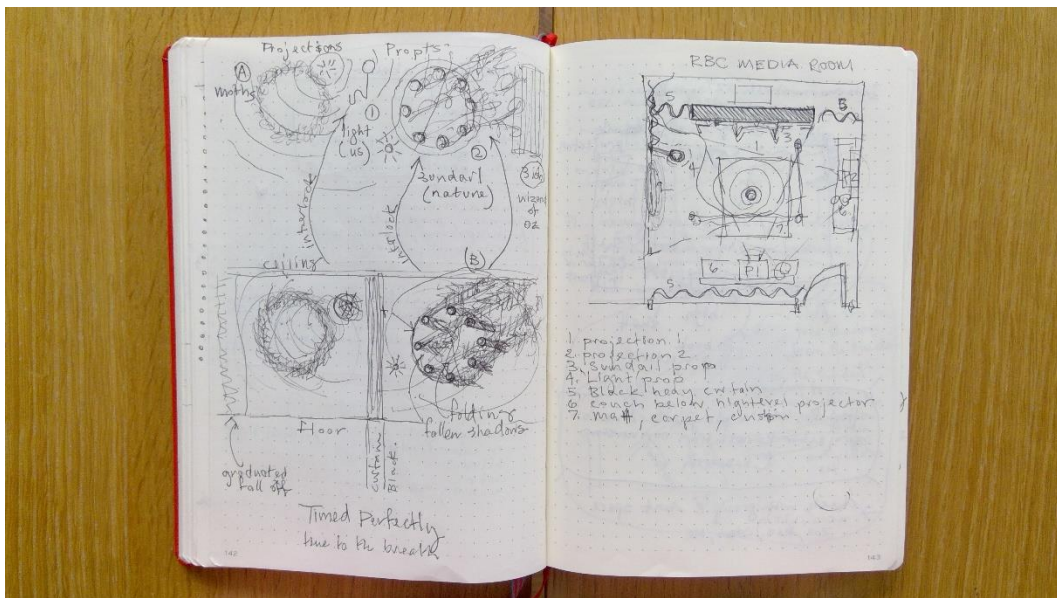 Projections
Propts
A
moths
1
light
(us)
2
Sundail
(nature)
3
wizard
of
oz
interlock
intrlock
ceiling
B
floor
folding
fallen shadows
curtain
Black.
graduated
fall off
Timed Perfectly
tune to the breath
142
RBC MEDIA ROOM
5
5
3
1
4
P2
7
6
P1
5
1. projection 1
2. projection 2
3. Sundail prop
4. Light prop
5. Black heavy curtain
6. couch below highlevel projector
7. matt, carpet,
143